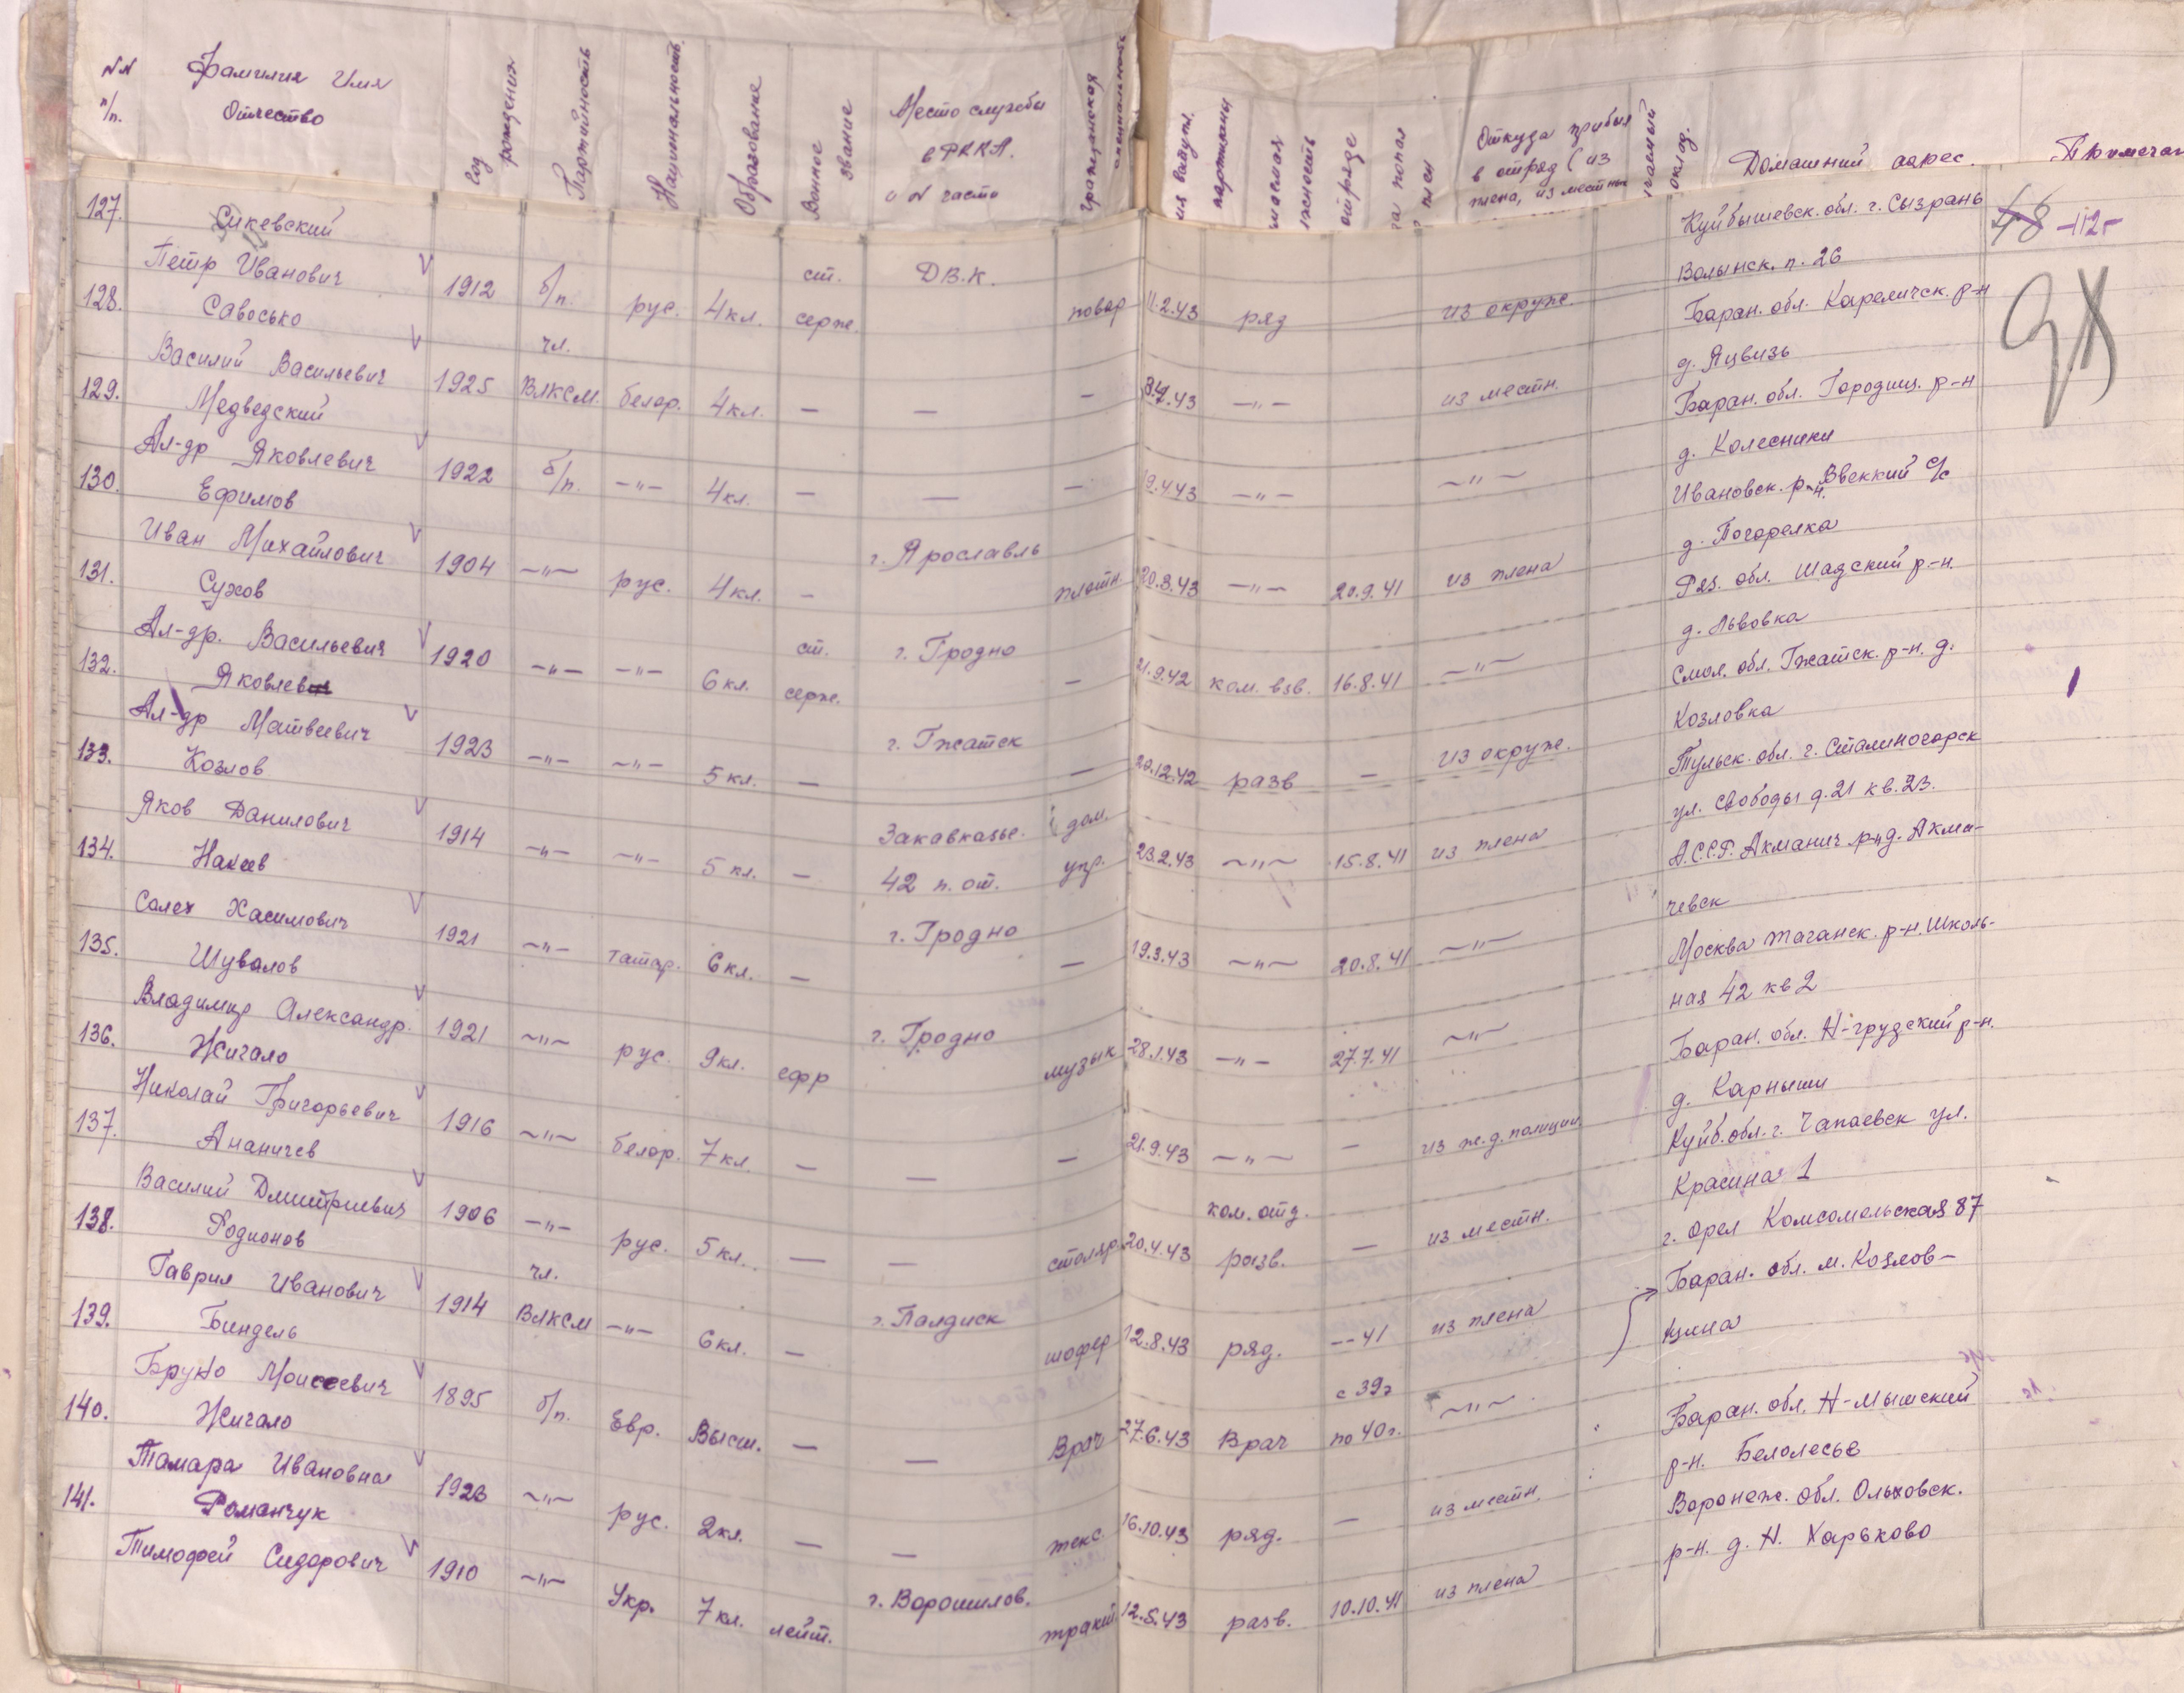 NN п/п.
Фамилия Имя Отчество
Год рождения
Партийность
Национальность
Образование
Воинское звание
Место службы в РККА. и N части
Гражданская специальность
Откуда прибыл в отряд (из плена, из местных
оклад.
Домашний адрес.
127. Сикевский Петр Иванович 1912 б/п. рус. 4 кл. ст. серж. ДВ.К. повар 11.2.43 ряд из окруж. Куйбышевск. обл. г. Сызрань Волынск. п. 26
48 -112-
128. Савосько Василий Васильевич 1925 чл. ВЛКСМ. белор. 4 кл. — — — 8.4.43 —"— из местн. Баран. обл. Кареличск. р-н д. Яцвизь
129. Медведский Ал-др Яковлевич 1922 б/п. —"— 4 кл. — — — 9.4.43 —"— —"— Баран. обл. Городищ. р-н д. Колесники
130. Ефимов Иван Михайлович 1904 —"— рус. 4 кл. — г. Ярославль плотн. 20.3.43 —"— 20.9.41 из плена Ивановск. р-н. с/с д. Погорелка
131. Сухов Ал-др. Васильевич 1920 —"— —"— 6 кл. ст. серж. г. Гродно — 21.9.42 ком. взв. 16.8.41 —"— Ряз. обл. Шадский р-н. д. Львовка
132. Яковлев Ал-др Матвеевич 1923 —"— —"— 5 кл. — г. Гжатск — 20.12.42 разв — из окруж. Смол. обл. Гжатск. р-н. д. Козловка
133. Козлов Яков Данилович 1914 —"— —"— 5 кл. — Закавказье. 42 п. от. дом. упр. 23.2.43 —"— 15.8.41 из плена Тульск. обл. г. Сталиногорск ул. Свободы д. 21 кв. 23.
134. Накеев Салех Хасимович 1921 —"— татар. 6 кл. — г. Гродно — 19.3.43 —"— 20.8.41 —"— А.С.С.Р. Акманич р-н д. Акма-чевск
135. Шувалов Владимир Александр. 1921 —"— рус. 9 кл. ефр г. Гродно музык 28.1.43 —"— 27.7.41 —"— Москва Таганск. р-н. Школь-ная 42 кв 2
136. Жигало Николай Григорьевич 1916 —"— белор. 7 кл. — — — 21.9.43 —"— — из ж.д. полиции. Баран. обл. Н-грудский р-н. д. Карныши
137. Ананичев Василий Дмитриевич 1906 —"— рус. 5 кл. — — столяр 20.4.43 ком. отд. разв. — из местн. Куйб. обл. г. Чапаевск ул. Красина 1
138. Родионов Гаврил Иванович 1914 чл. ВЛКСМ —"— 6 кл. — г. Палдиск шофер 12.8.43 ряд. --41 из плена г. Орел Комсомольская 87
139. Биндель Бруно Моисеевич 1895 б/п. Евр. Высш. — — Врач 27.6.43 Врач с 39г по 40г. —"— Баран. обл. м. Козлов-щина
140. Жигало Тамара Ивановна 1923 —"— рус. 2 кл. — — 16.10.43 ряд. — из местн. Баран. обл. Н-Мышский р-н. Белолесье
141. Романчук Тимофей Сидорович 1910 —"— Укр. 7 кл. лейт. г. Ворошилов. 12.5.43 разв. 10.10.41 из плена Воронеж. обл. Ольховск. р-н. д. Н. Харьково